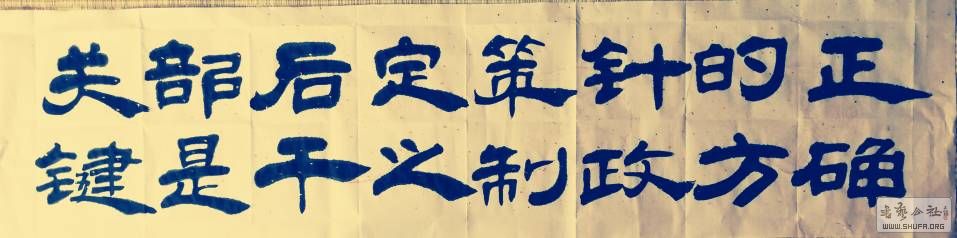 正确
的方
针政
策制
定之
后干
部是
关键
书艺公社
WWW.SHUFA.ORG